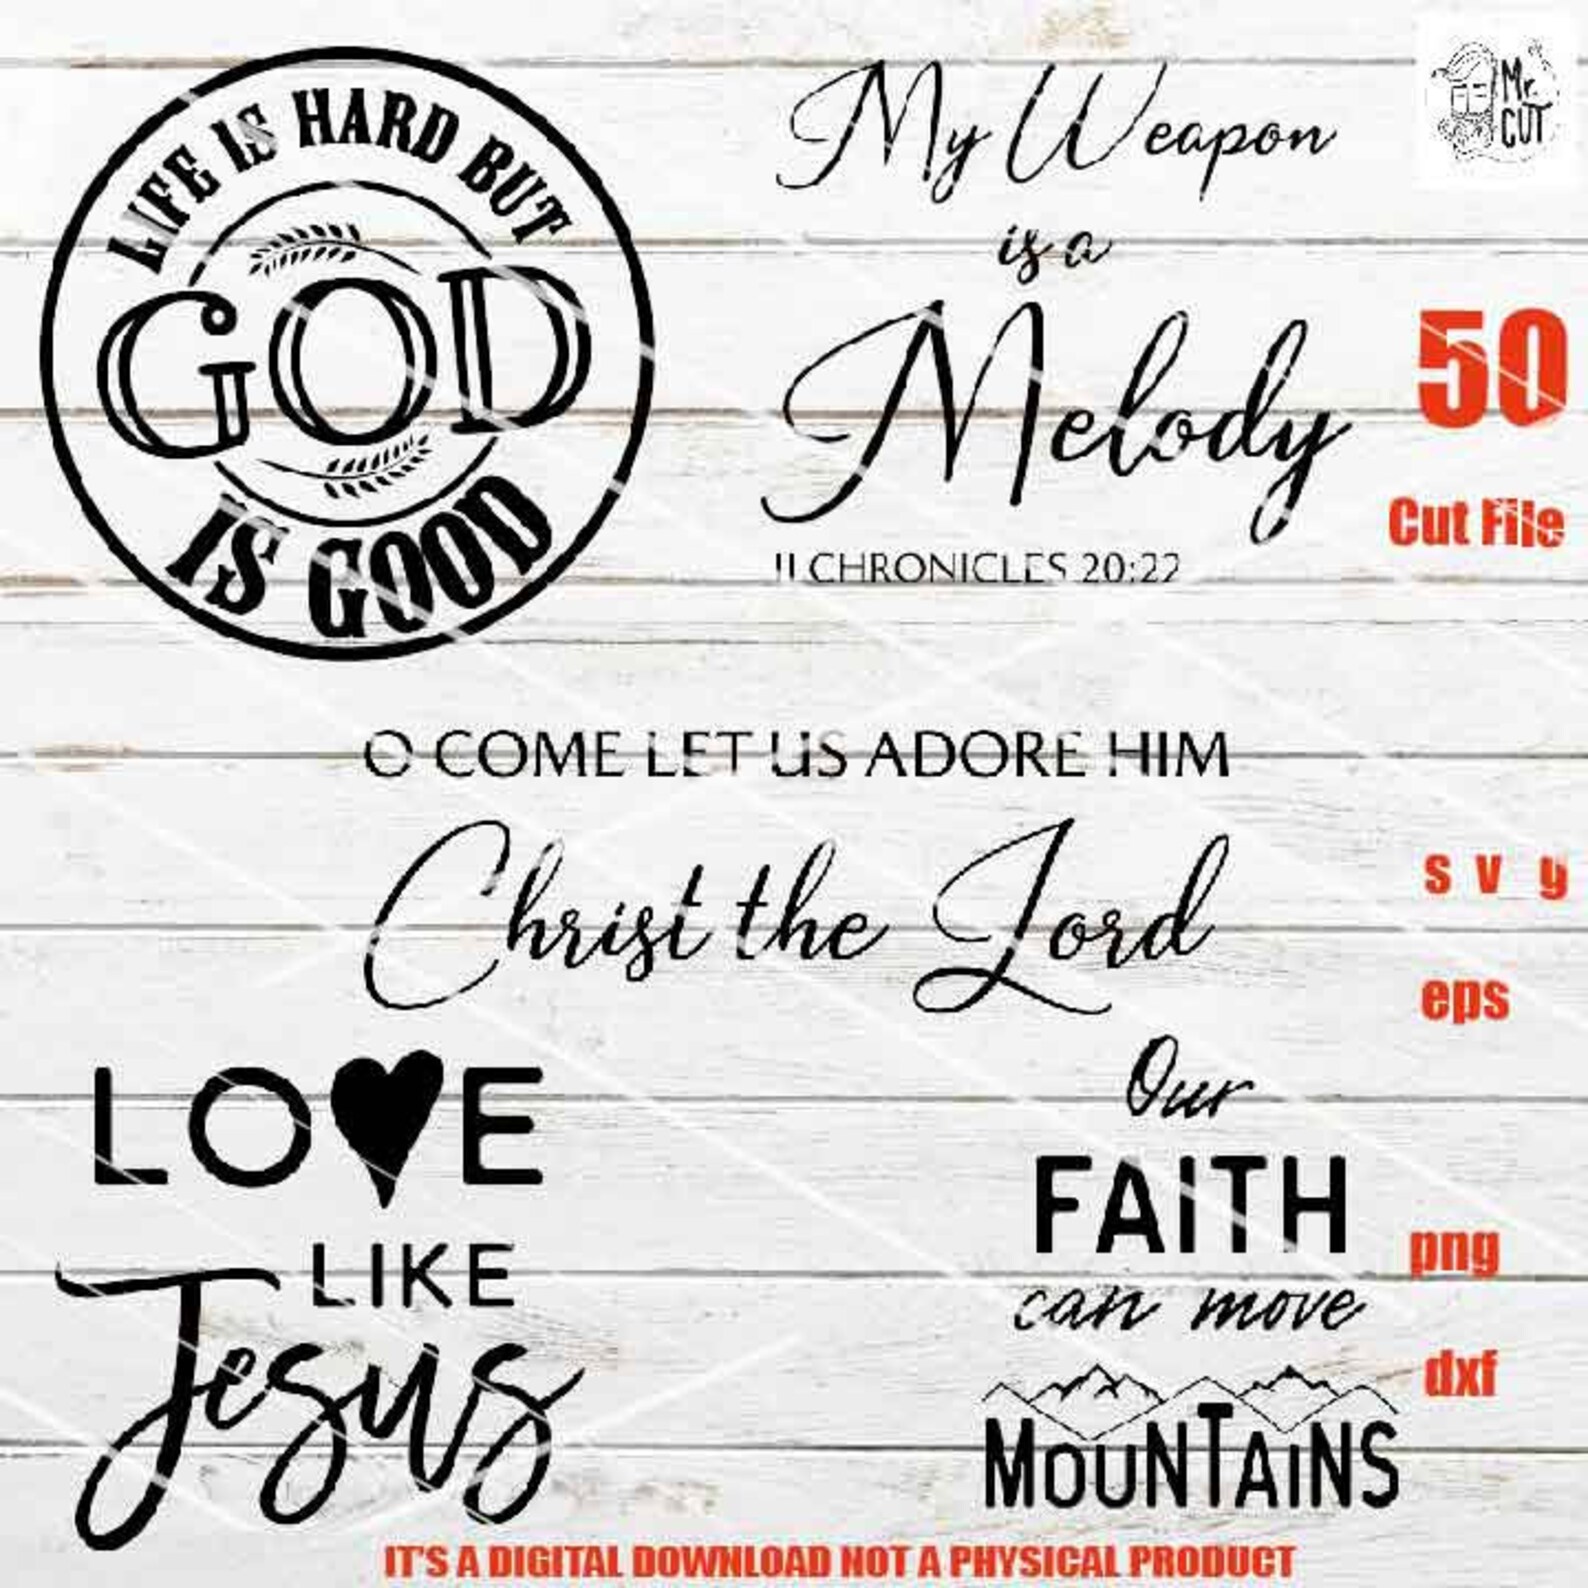 LIFE IS HARD BUT
GOD
IS GOOD
My Weapon
is a
Melody
II CHRONICLES 20:22
Mr.
CUT
50
Cut File
O COME LET US ADORE HIM
Christ the Lord
s v g
eps
LOVE
LIKE
Jesus
Our
FAITH
can move
MOUNTAiNS
png
dxf
IT'S A DIGITAL DOWNLOAD NOT A PHYSICAL PRODUCT